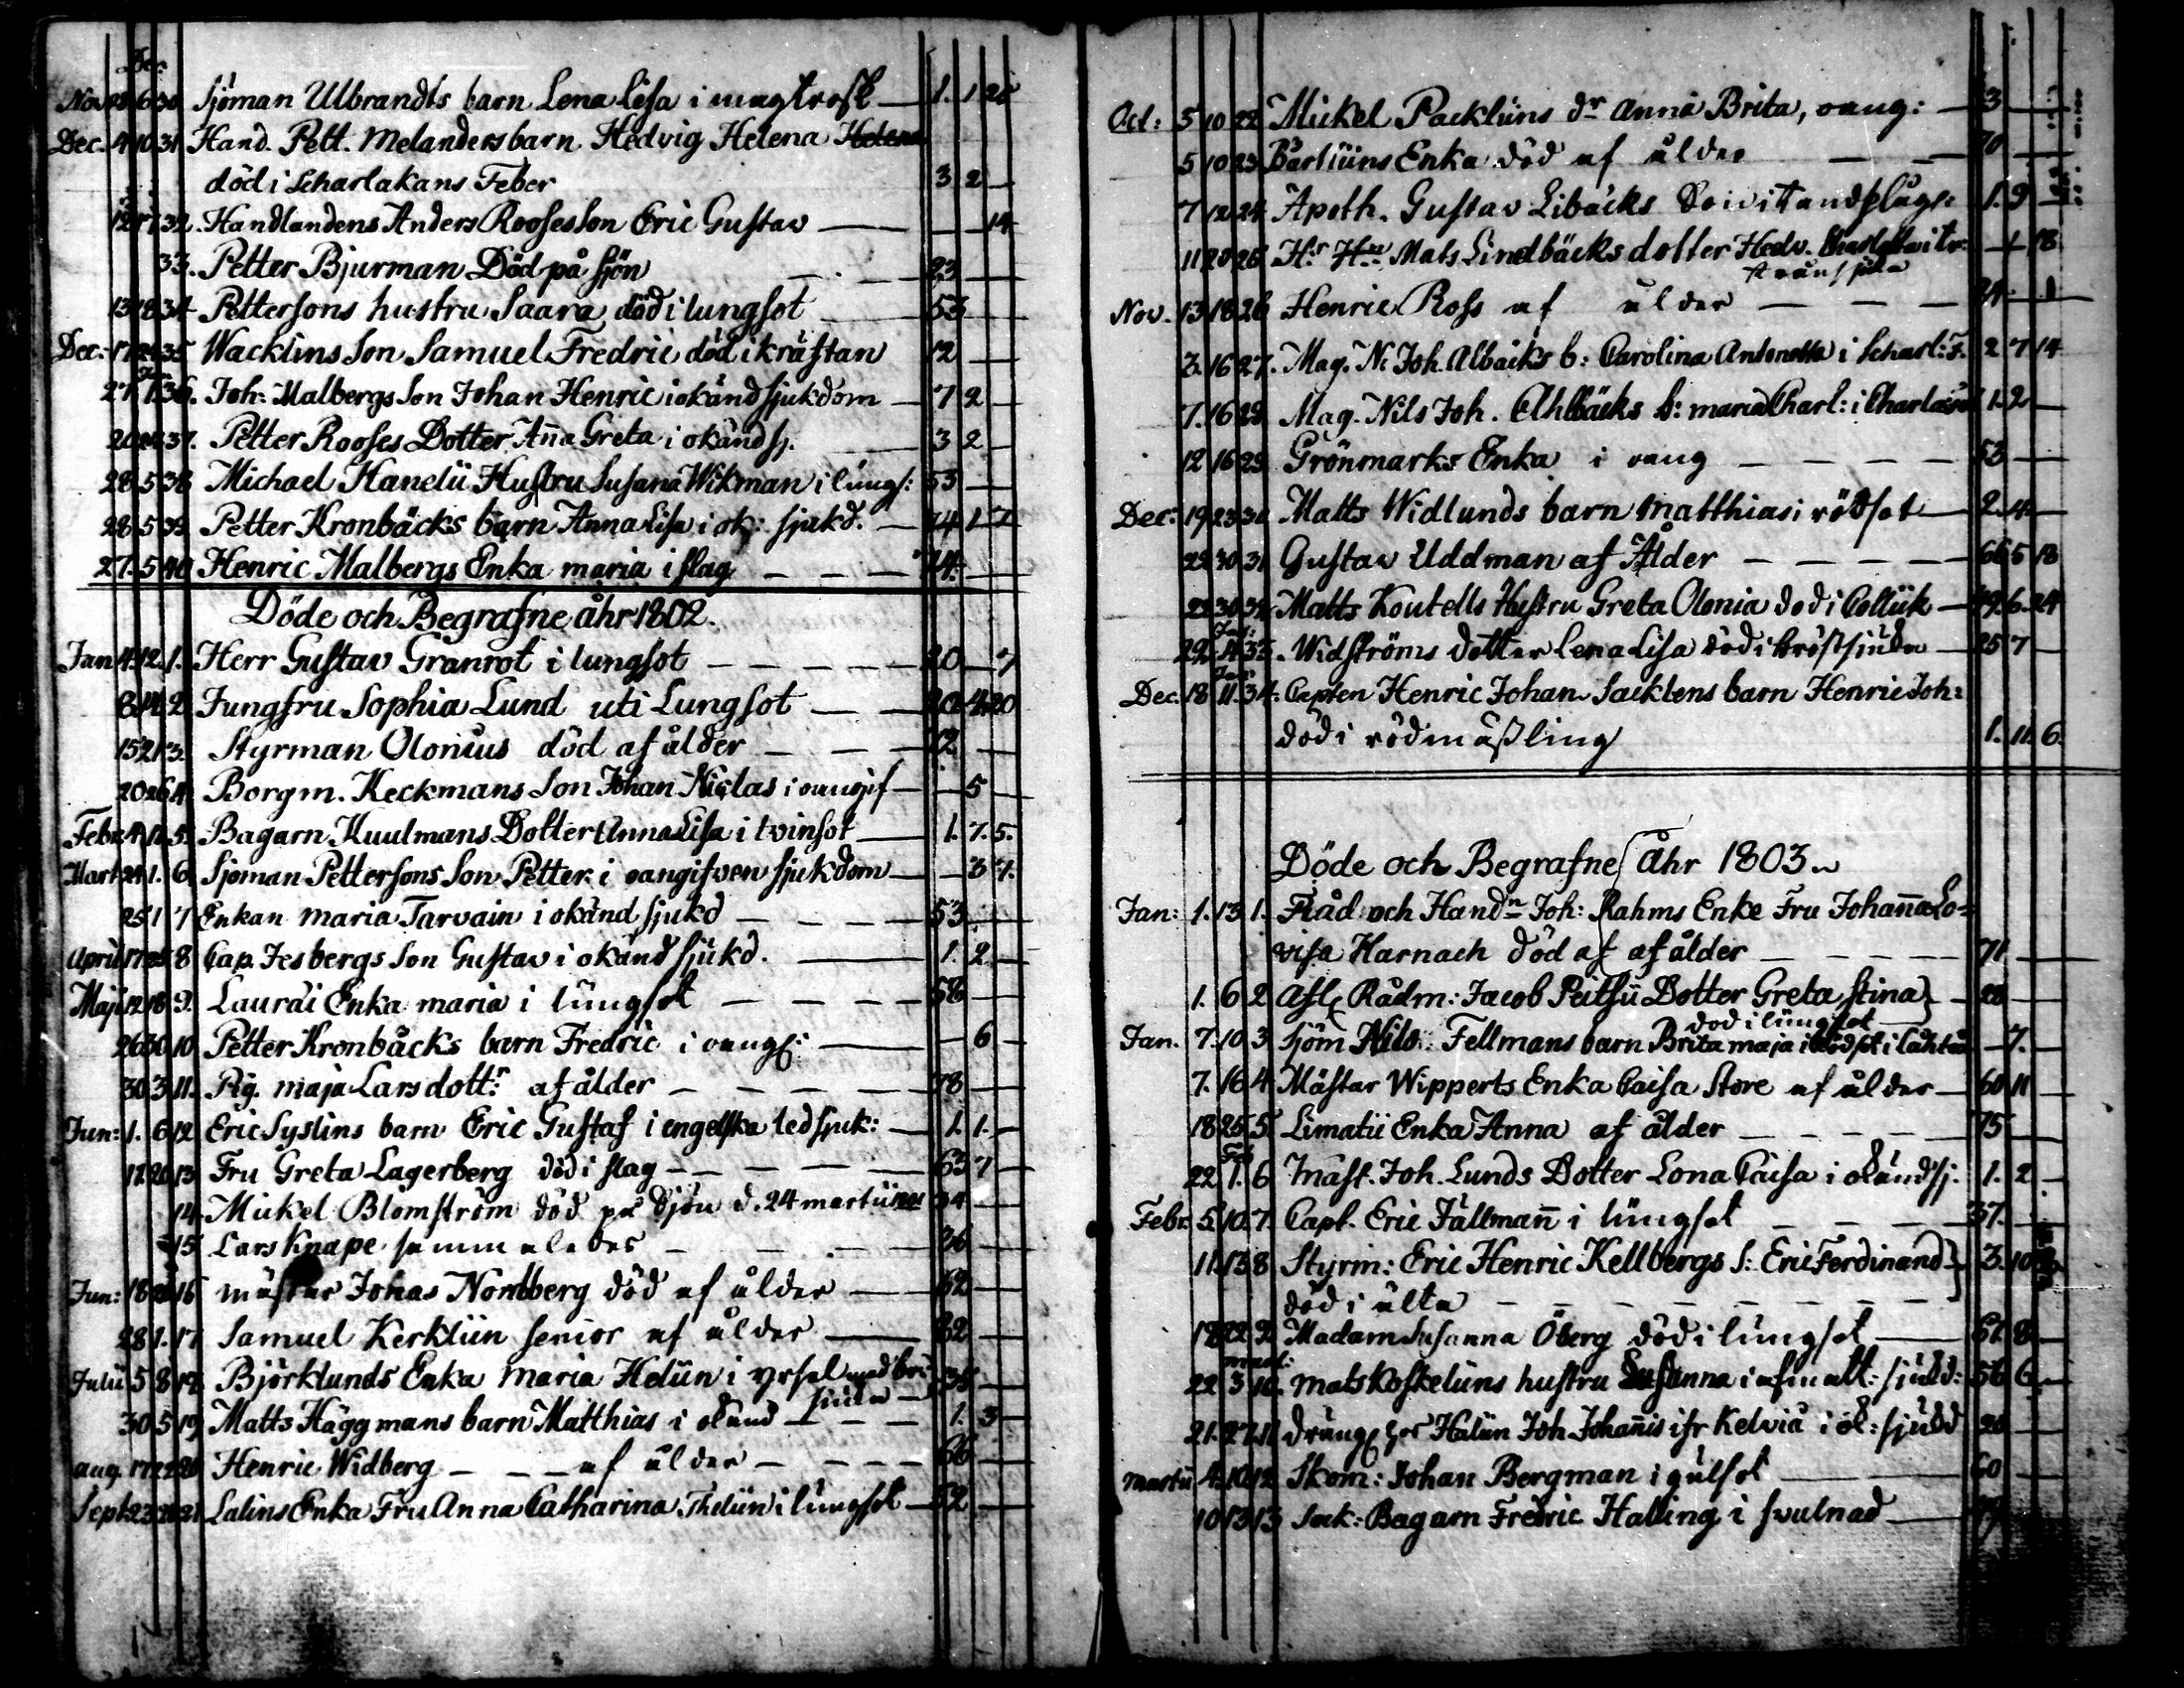 Dec:
Nov 28 6 30 Sjöman Ulbrandts barn Lena Lisa i magtrosk — 1. 1 25
Dec. 4 10 31 Hand. Pett. Melanders barn Hedvig Helena Helena
död i Scharlakans Feber 3 2 —
12 17 32. Handlandens Anders Rooses Son Eric Gustav — — — 14
33. Petter Bjurman Död på sjön — 23
13 18 34 Pettersons hustru Saara död i lungsot — 53
Dec: 17 35 Wacklins Son Samuel Fredric död i kräftan 12 —
27 7. 36. Joh: Malbergs Son Johan Henric i okänd sjukdom — 7 2 —
20 37. Petter Rooses Dotter Aña Greta i okänd sj. — 3 2 —
28 5 38 Michael Hanelii Hustru Susana Wikman i lungs: 53 —
28 5 39 Petter Kronbäcks barn Anna Lisa i ok: sjukd. — 14 1 7
27. 5 40 Henric Malbergs Enka maria i slag — — — 74. —
Döde och Begrafne åhr 1802.
Jan 4 12. 1. Herr Gustav Granrot i lungsot — — — — 20 — 7
8 14 2. Jungfru Sophia Lund uti Lungsot — — 20 4 20
15 21 3. Styrman Olonius död af ålder — — — 72 —
20 26 4. Borgm. Keckmans Son Johan Niclas i oangif — — 5 —
Febr. 4 11 5. Bagarn Kuulmans Dotter Anna Lisa i tvinsot — 1. 7. 5.
Mart 24 1. 6. Sjöman Pettersons Son Petter i oangifven sjukdom — — 3 7.
25 1 7 Enkan maria Tarvain i okänd sjukd — — — 53 —
April 17 25 8 Cap. Jesbergs Son Gustav i okänd sjukd. — 1. 2 —
Maji 12 18 9. Laurai Enka maria i lungsot — — — — 58 —
26 30 10 Petter Kronbäcks barn Fredric i oang: — — 6 —
30 3 11. Pig. maja Larsdottr af ålder — — — — 78 —
Jun: 1. 6 12 Eric Syslins barn Eric Gustaf i engelska ledsjuk: — 1. 1. —
17 20 13 Fru Greta Lagerberg död i slag — — — — 65 7 —
14. Mickel Blomström död på Sjön d. 24 martii 34 —
15 Lars Knape sammaledes — — — 36 —
Jun: 18 16 mäster Johas Nordberg död af ålder — 62 —
28 1. 17 Samuel Kerkliin senior af ålder — 82 —
Julii 5 8 18 Björklunds Enka maria Heliin i yrsel med brö- 35 —
sjuka
30 5 19 Matts Häggmans barn Matthias i okänd — — — 1. 3 —
aug. 17 22 20 Henric Widberg — — — af ålder — — — — 66 —
Sept. 23 21 Salins Enka Fru Anna Catharina Theliin i lungsot — 52 —
Oct: 5 10 22 Mickel Packliins dr Anna Brita, oang: — 3 —
5 10 23 Barliins Enka död af ålder — — 70 —
7 12 24 Apoth. Gustav Libäcks Son i tandslage: 1. 9 —
11 20 25 Hr Mats Lindbäcks dotter Hedv. Charlotta i tr: — 1 18
Nov. 13 18 26 Henric Ross af ålder — — — —
3. 16 27. Mag. N: Joh. Albäcks b: Carolina Antonetta i Scharl: F. 2 7 14
7. 16 28 Mag. Nils Joh. Ahlbäcks b: maria Charl: i 1 2 —
12 16 29 Grönmarks Enka i oang — — — — 53 —
Dec: 19 23 30 Matts Widlunds barn Matthias i rödsot — 2. 4. —
22 30 31 Gustav Uddman af Ålder — — — — 66 5 18
22 30 32 Matts Koutells Hustru Greta Olonia död i Collick — 49. 6. 24
Jan:
22 4 33. Widströms dotter Lena Lisa död i bröstsjuka — 25 7 —
Jan:
Dec. 18 11. 34. Capten Henric Johan Sacklens barn Henric Joh:
död i rödmäßling 1. 11. 6.
Döde och Begrafne Åhr 1803.
Jan: 1. 13 1. Råd. och Handn Joh: Rahms Enke Fru Johaña Lo-
visa Harnach död af af ålder — — — — 71 —
1. 6 2 Afl. Rådm: Jacob Peitsii Dotter Greta Stina — 28 —
död i lungsot
Jan. 7. 10 3 Sjöm Nils: Fellmans barn Brita maja — 7. —
7. 16 4 Mästar Wipperts Enka Caisa Store af ålder — 60 11 —
18 25 5. Limatii Enka Anna af ålder — — — — 75 —
Feb
22 1. 6 Mäst. Joh. Lunds Dotter Lona Caisa i okänd sj. 1. 2 —
Febr. 5. 10. 7. Capt. Eric Fällmañ i lungsot — — — — 37. —
11. 13 8 Styrm: Eric Henric Kellbergs S: Eric Ferdinand 3. 10
död i älta — — — — — — —
18 22 9. Madam Susanna Öberg död i lungsot — 67. 8. —
22 3 10. mats Koskeliins hustru Susanna i afmatt: sjukd: 56 6 —
21. 27. 11 dräng Haliin Joh. Johañis ifr Kelviå i ok: sjukd 20 —
martii 4. 10. 12 Skom: Johan Bergman i gulsot — 60 —
10 13 13 Sock: Bagarn Fredric Halling i svulnad —